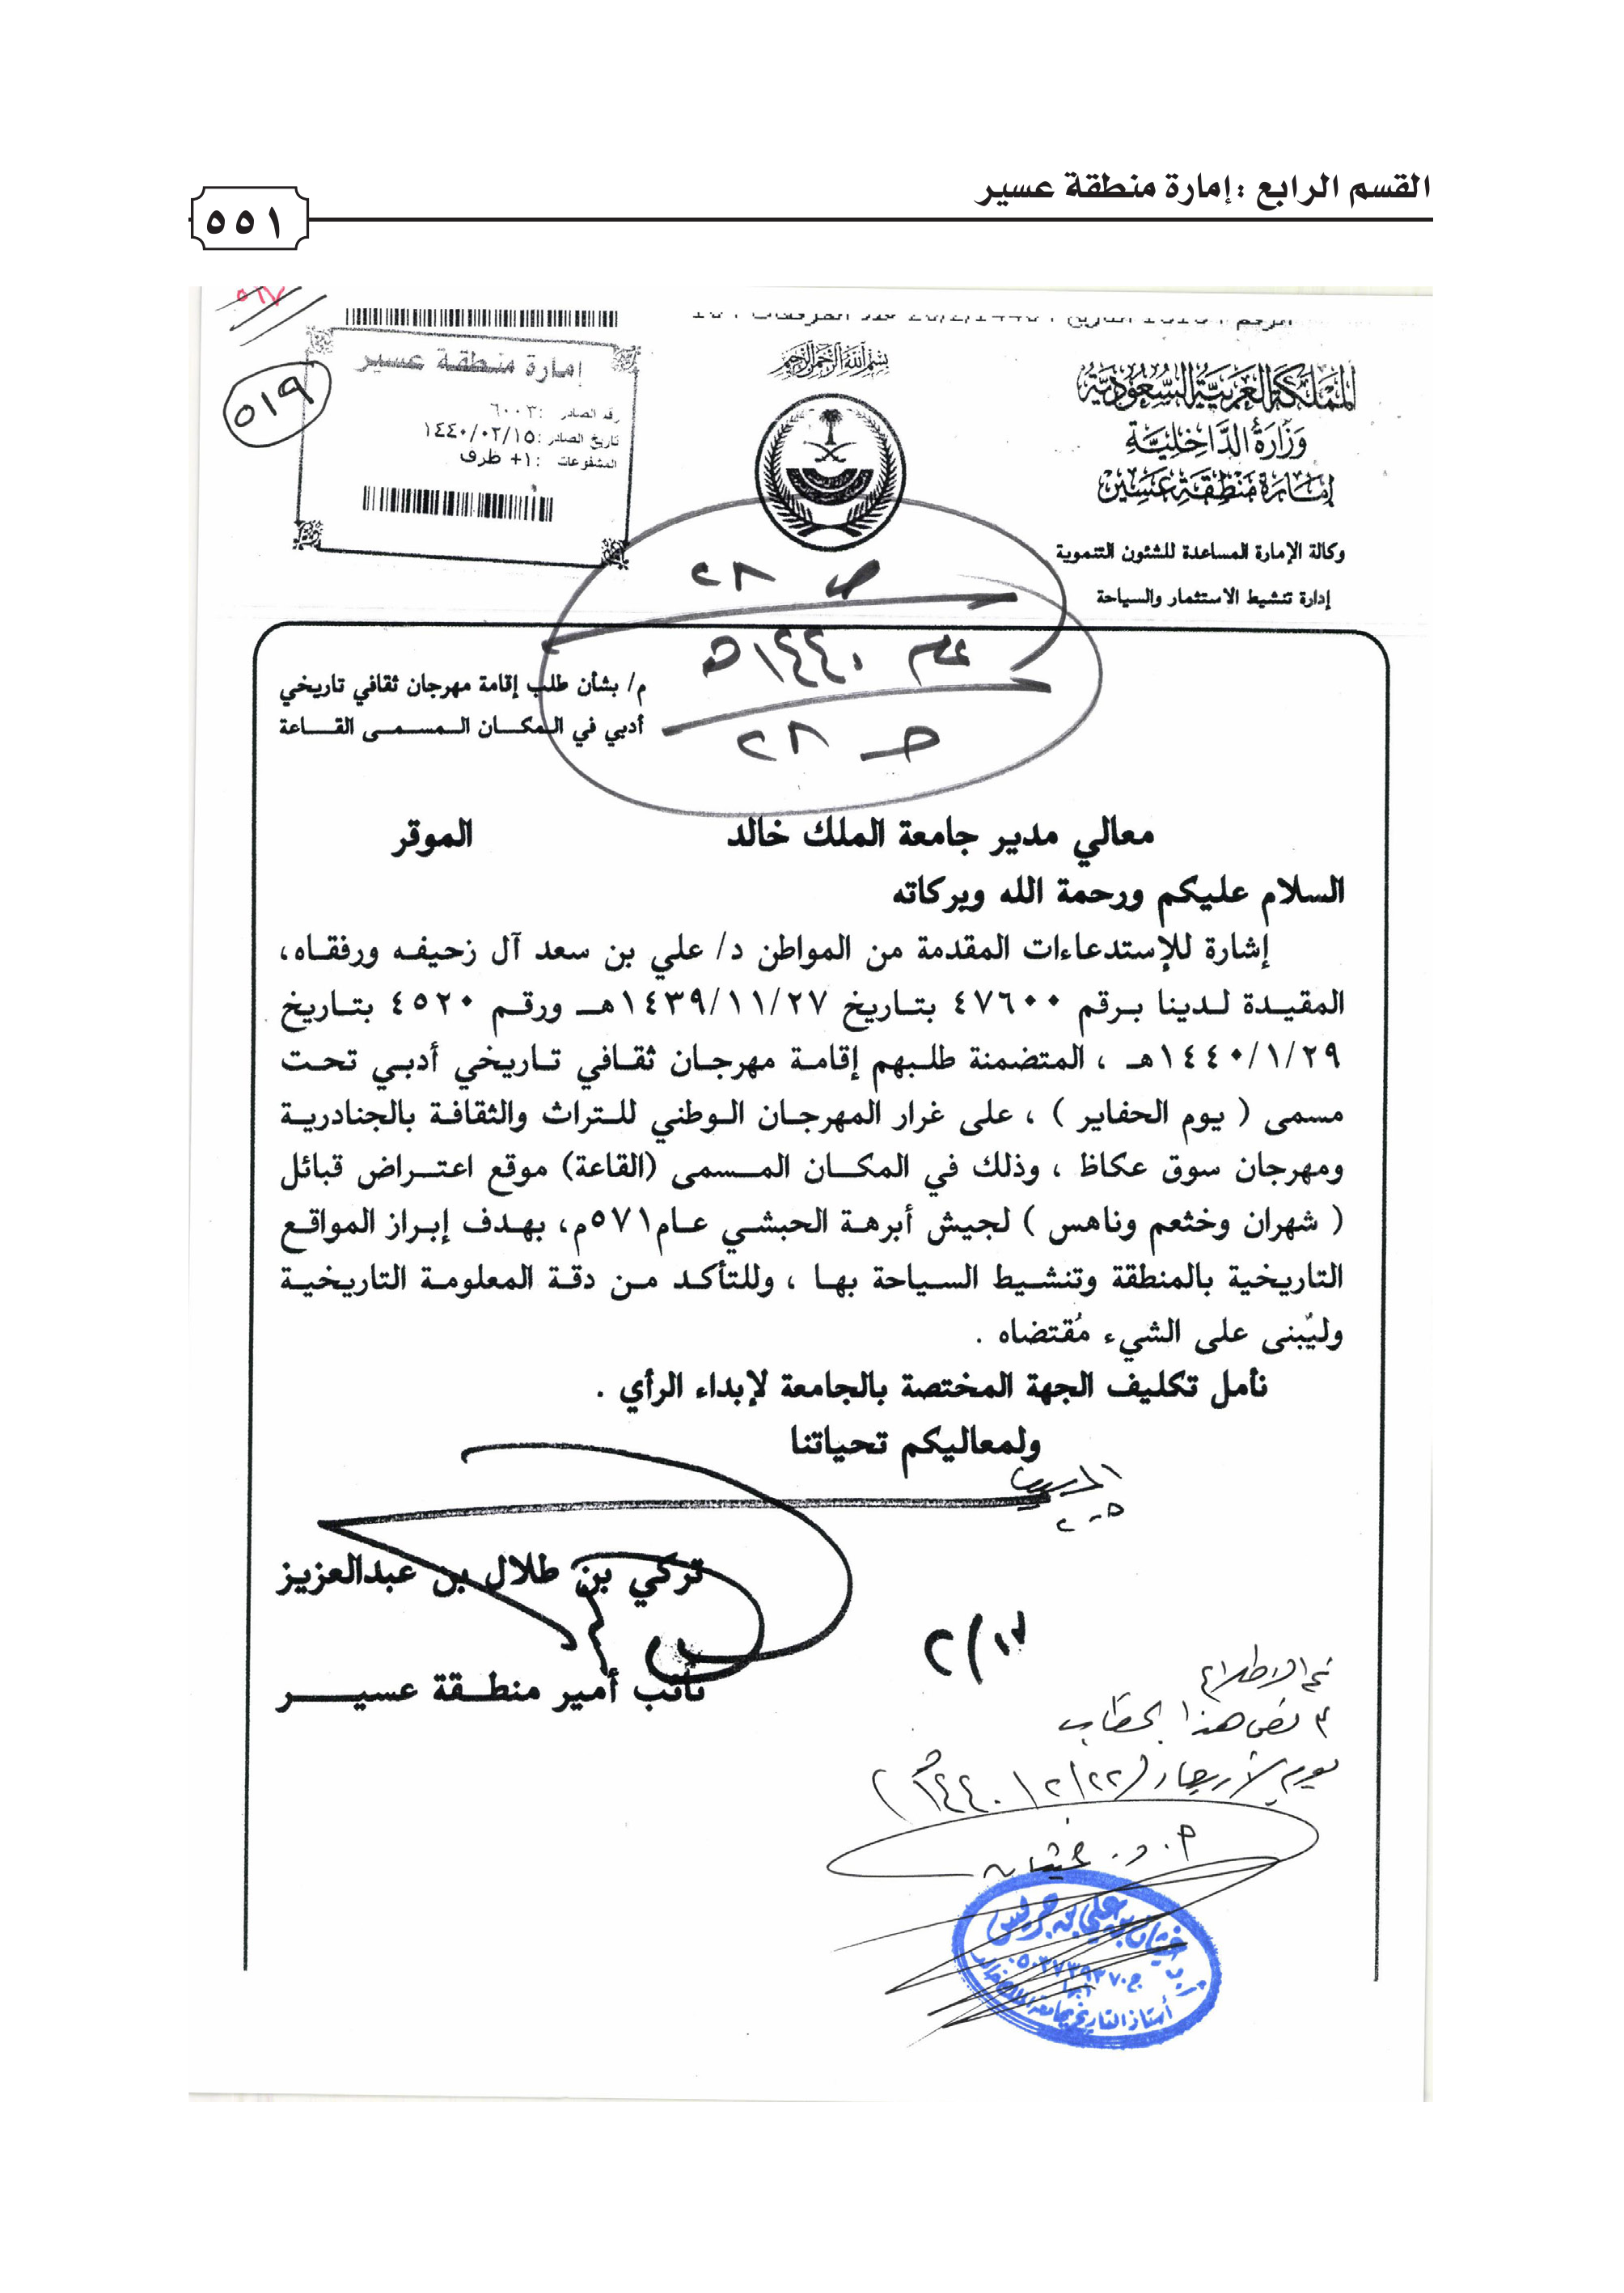 القسم الرابع : إمارة منطقة عسير
٥٥١
٥١٩
بسم الله الرحمن الرحيم
المملكة العربية السعودية
وزارة الداخلية
إمارة منطقة عسير
وكالة الإمارة المساعدة للشئون التنموية
إدارة تنشيط الاستثمار والسياحة
إمارة منطقة عسير
رقم الصادر : ٦٠٠٣
تاريخ الصادر : ١٤٤٠/٠٢/١٥
المشفوعات : ١+ ظرف
ص ٢٨
عام ١٤٤٠هـ
ح ٢٨
م/ بشأن طلب إقامة مهرجان ثقافي تاريخي
أدبي في المكان المسمى القاعة
معالي مدير جامعة الملك خالد الموقر
السلام عليكم ورحمة الله وبركاته
إشارة للإستدعاءات المقدمة من المواطن د/ علي بن سعد آل زحيفه ورفقاه،
المقيدة لدينا برقم ٤٧٦٠٠ بتاريخ ١٤٣٩/١١/٢٧هـ ورقم ٤٥٢٠ بتاريخ
١٤٤٠/١/٢٩هـ ، المتضمنة طلبهم إقامة مهرجان ثقافي تاريخي أدبي تحت
مسمى ( يوم الحفاير ) ، على غرار المهرجان الوطني للتراث والثقافة بالجنادرية
ومهرجان سوق عكاظ ، وذلك في المكان المسمى (القاعة) موقع اعتراض قبائل
( شهران وخثعم وناهس ) لجيش أبرهة الحبشي عام٥٧١م، بهدف إبراز المواقع
التاريخية بالمنطقة وتنشيط السياحة بها ، وللتأكد من دقة المعلومة التاريخية
وليُبنى على الشيء مُقتضاه .
نأمل تكليف الجهة المختصة بالجامعة لإبداء الرأي .
ولمعاليكم تحياتنا
تركي بن طلال بن عبدالعزيز
نائب أمير منطقة عسير
تم الاطلاع
على هذا الخطاب
يوم الأربعاء (٢٢/٢/١٤٤٠هـ)
أ. د. غيثان
أ.د غيثان بن علي بن جريس
ج٠٥٠٣٧٣٩٣٧٠
أبها
أستاذ التاريخ بجامعة الملك خالد